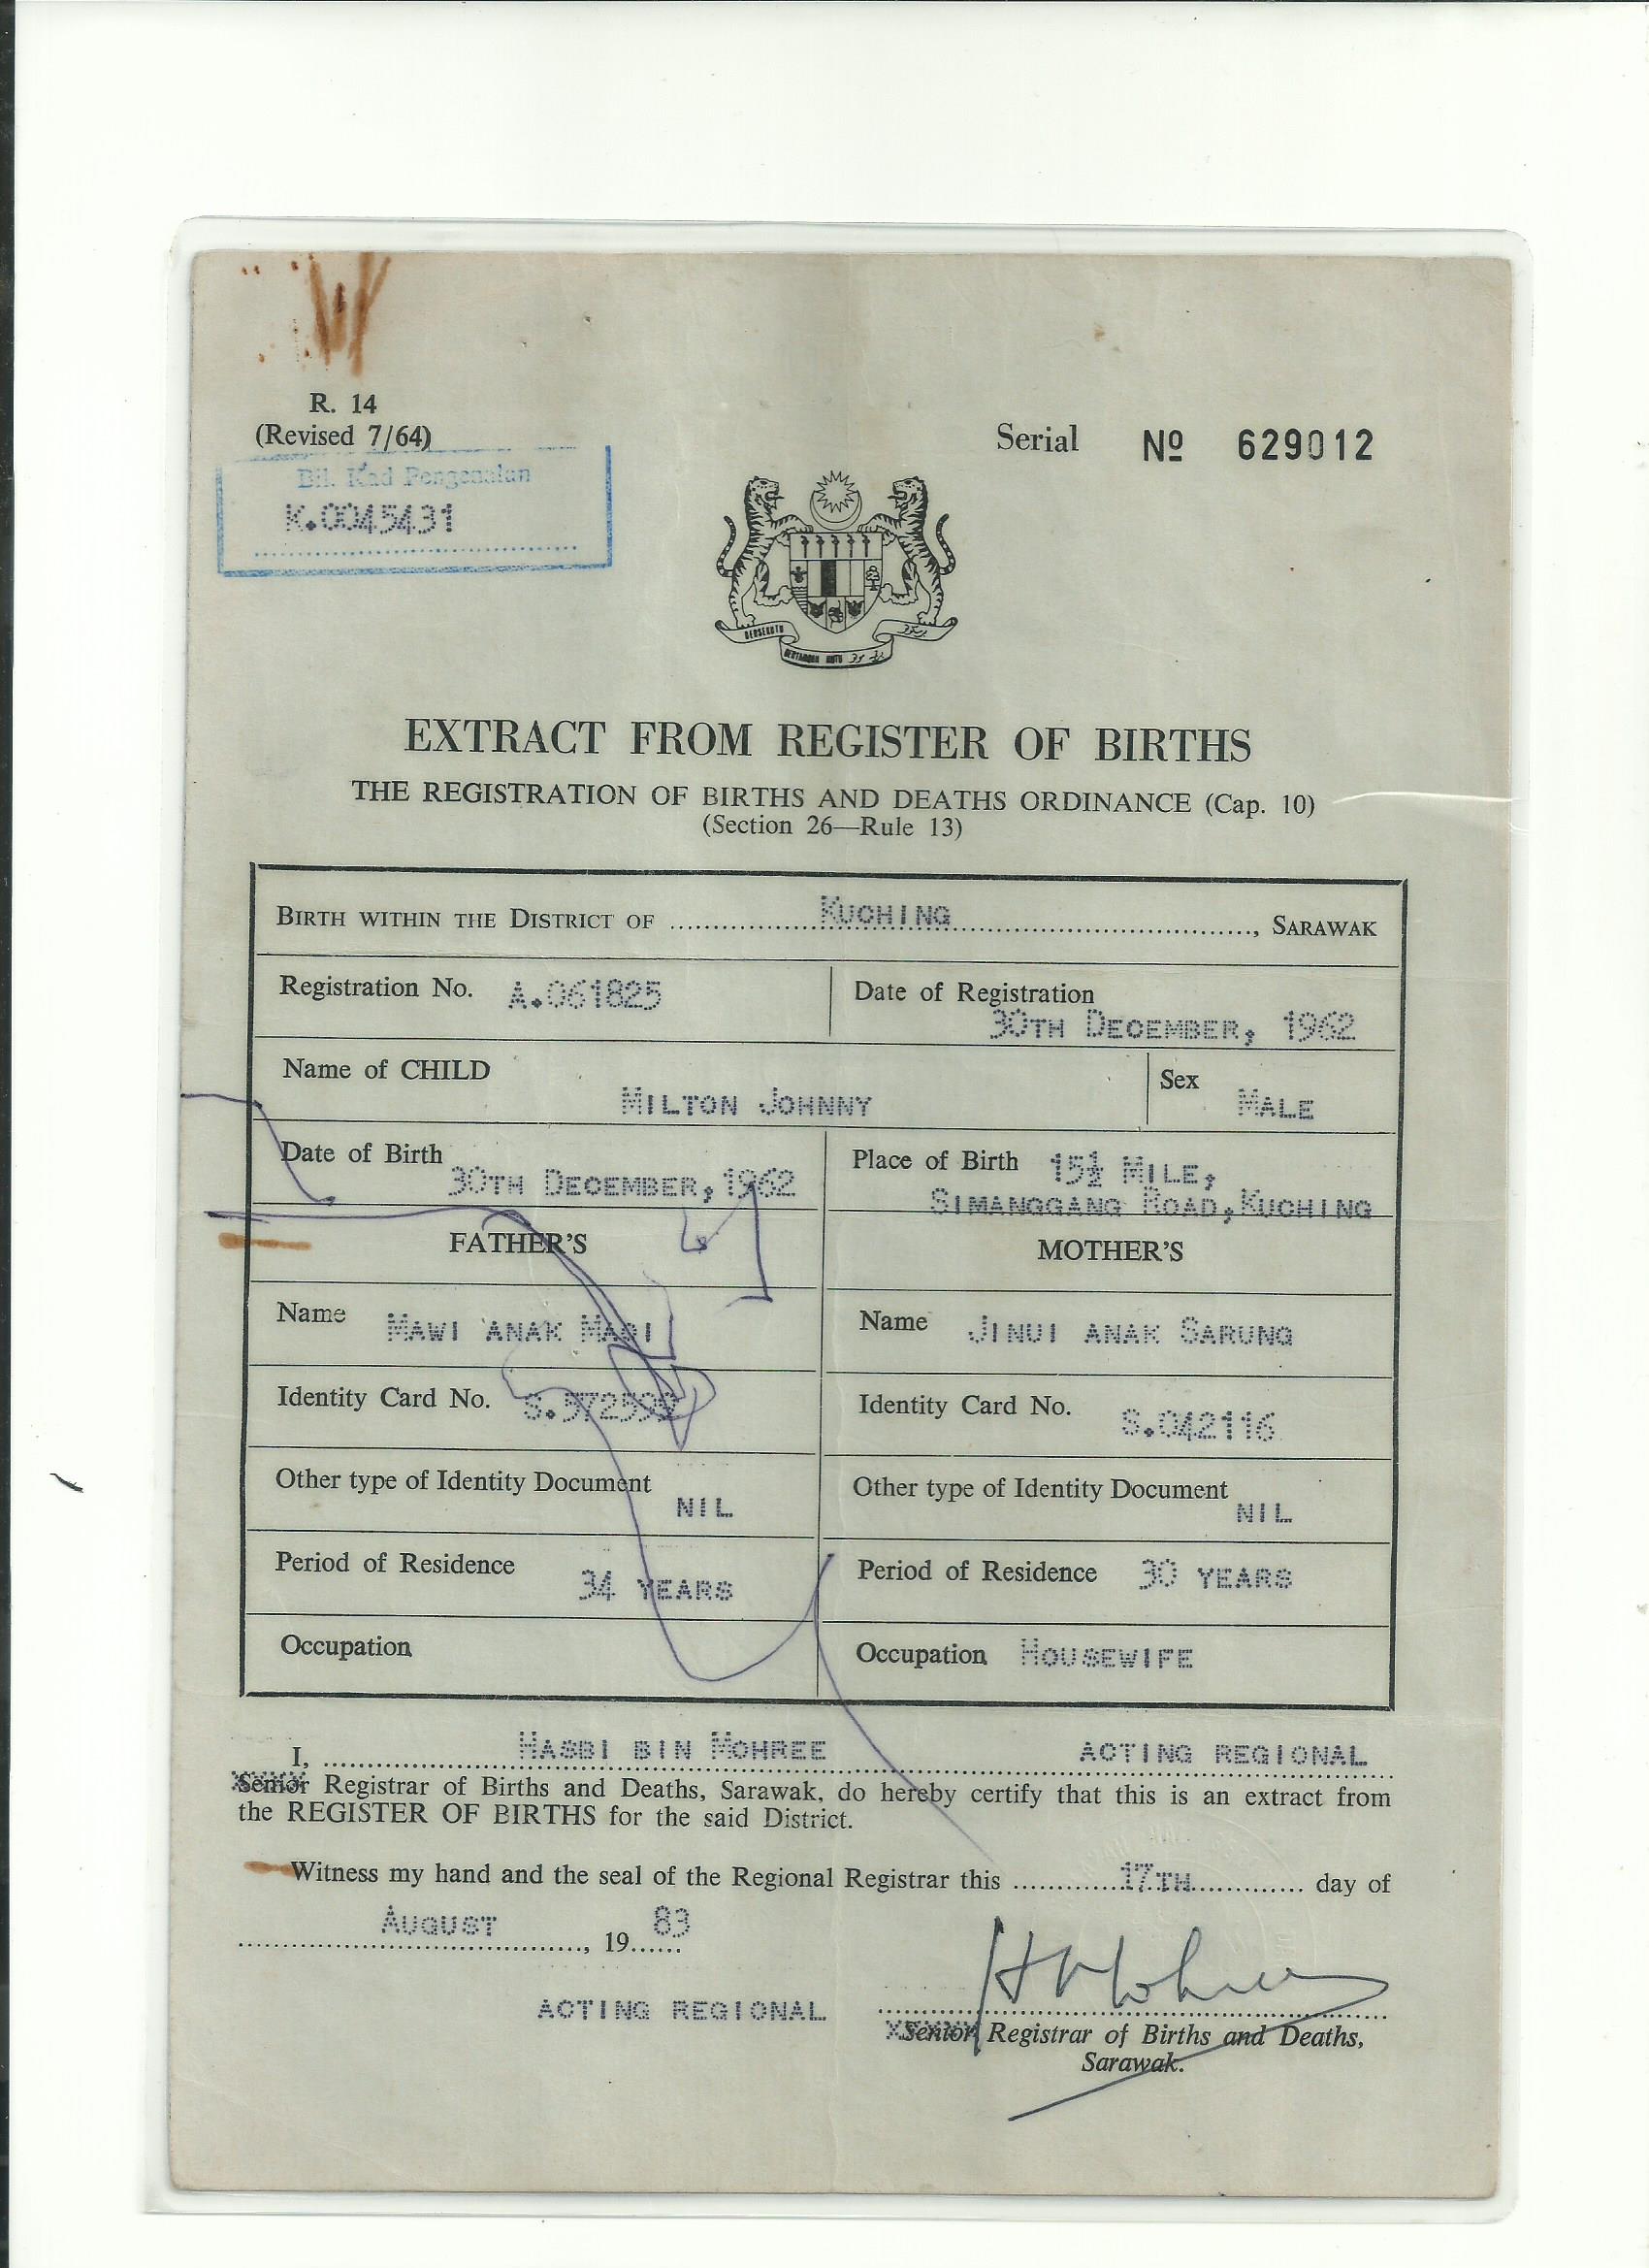 R. 14
(Revised 7/64)
Serial Nº 629012
Bil. Kad Pengenalan
K.0045431
BERSEKUTU
BERTAMBAH MUTU
EXTRACT FROM REGISTER OF BIRTHS
THE REGISTRATION OF BIRTHS AND DEATHS ORDINANCE (Cap. 10)
(Section 26—Rule 13)
BIRTH WITHIN THE DISTRICT OF KUCHING, SARAWAK
Registration No. A.061825
Date of Registration
30TH DECEMBER, 1962
Name of CHILD
MILTON JOHNNY
Sex
MALE
Date of Birth
30TH DECEMBER, 1962
Place of Birth 15½ MILE,
SIMANGGANG ROAD, KUCHING
FATHER'S
MOTHER'S
Name MAWI ANAK
Name JINUI ANAK SARUNG
Identity Card No.
Identity Card No. S.042116
Other type of Identity Document
NIL
Other type of Identity Document
NIL
Period of Residence 34 YEARS
Period of Residence 30 YEARS
Occupation
Occupation HOUSEWIFE
I, HASBI BIN MOHREE ACTING REGIONAL
Senior Registrar of Births and Deaths, Sarawak, do hereby certify that this is an extract from
the REGISTER OF BIRTHS for the said District.
Witness my hand and the seal of the Regional Registrar this 17TH day of
AUGUST, 19 83
ACTING REGIONAL
Senior Registrar of Births and Deaths,
Sarawak.